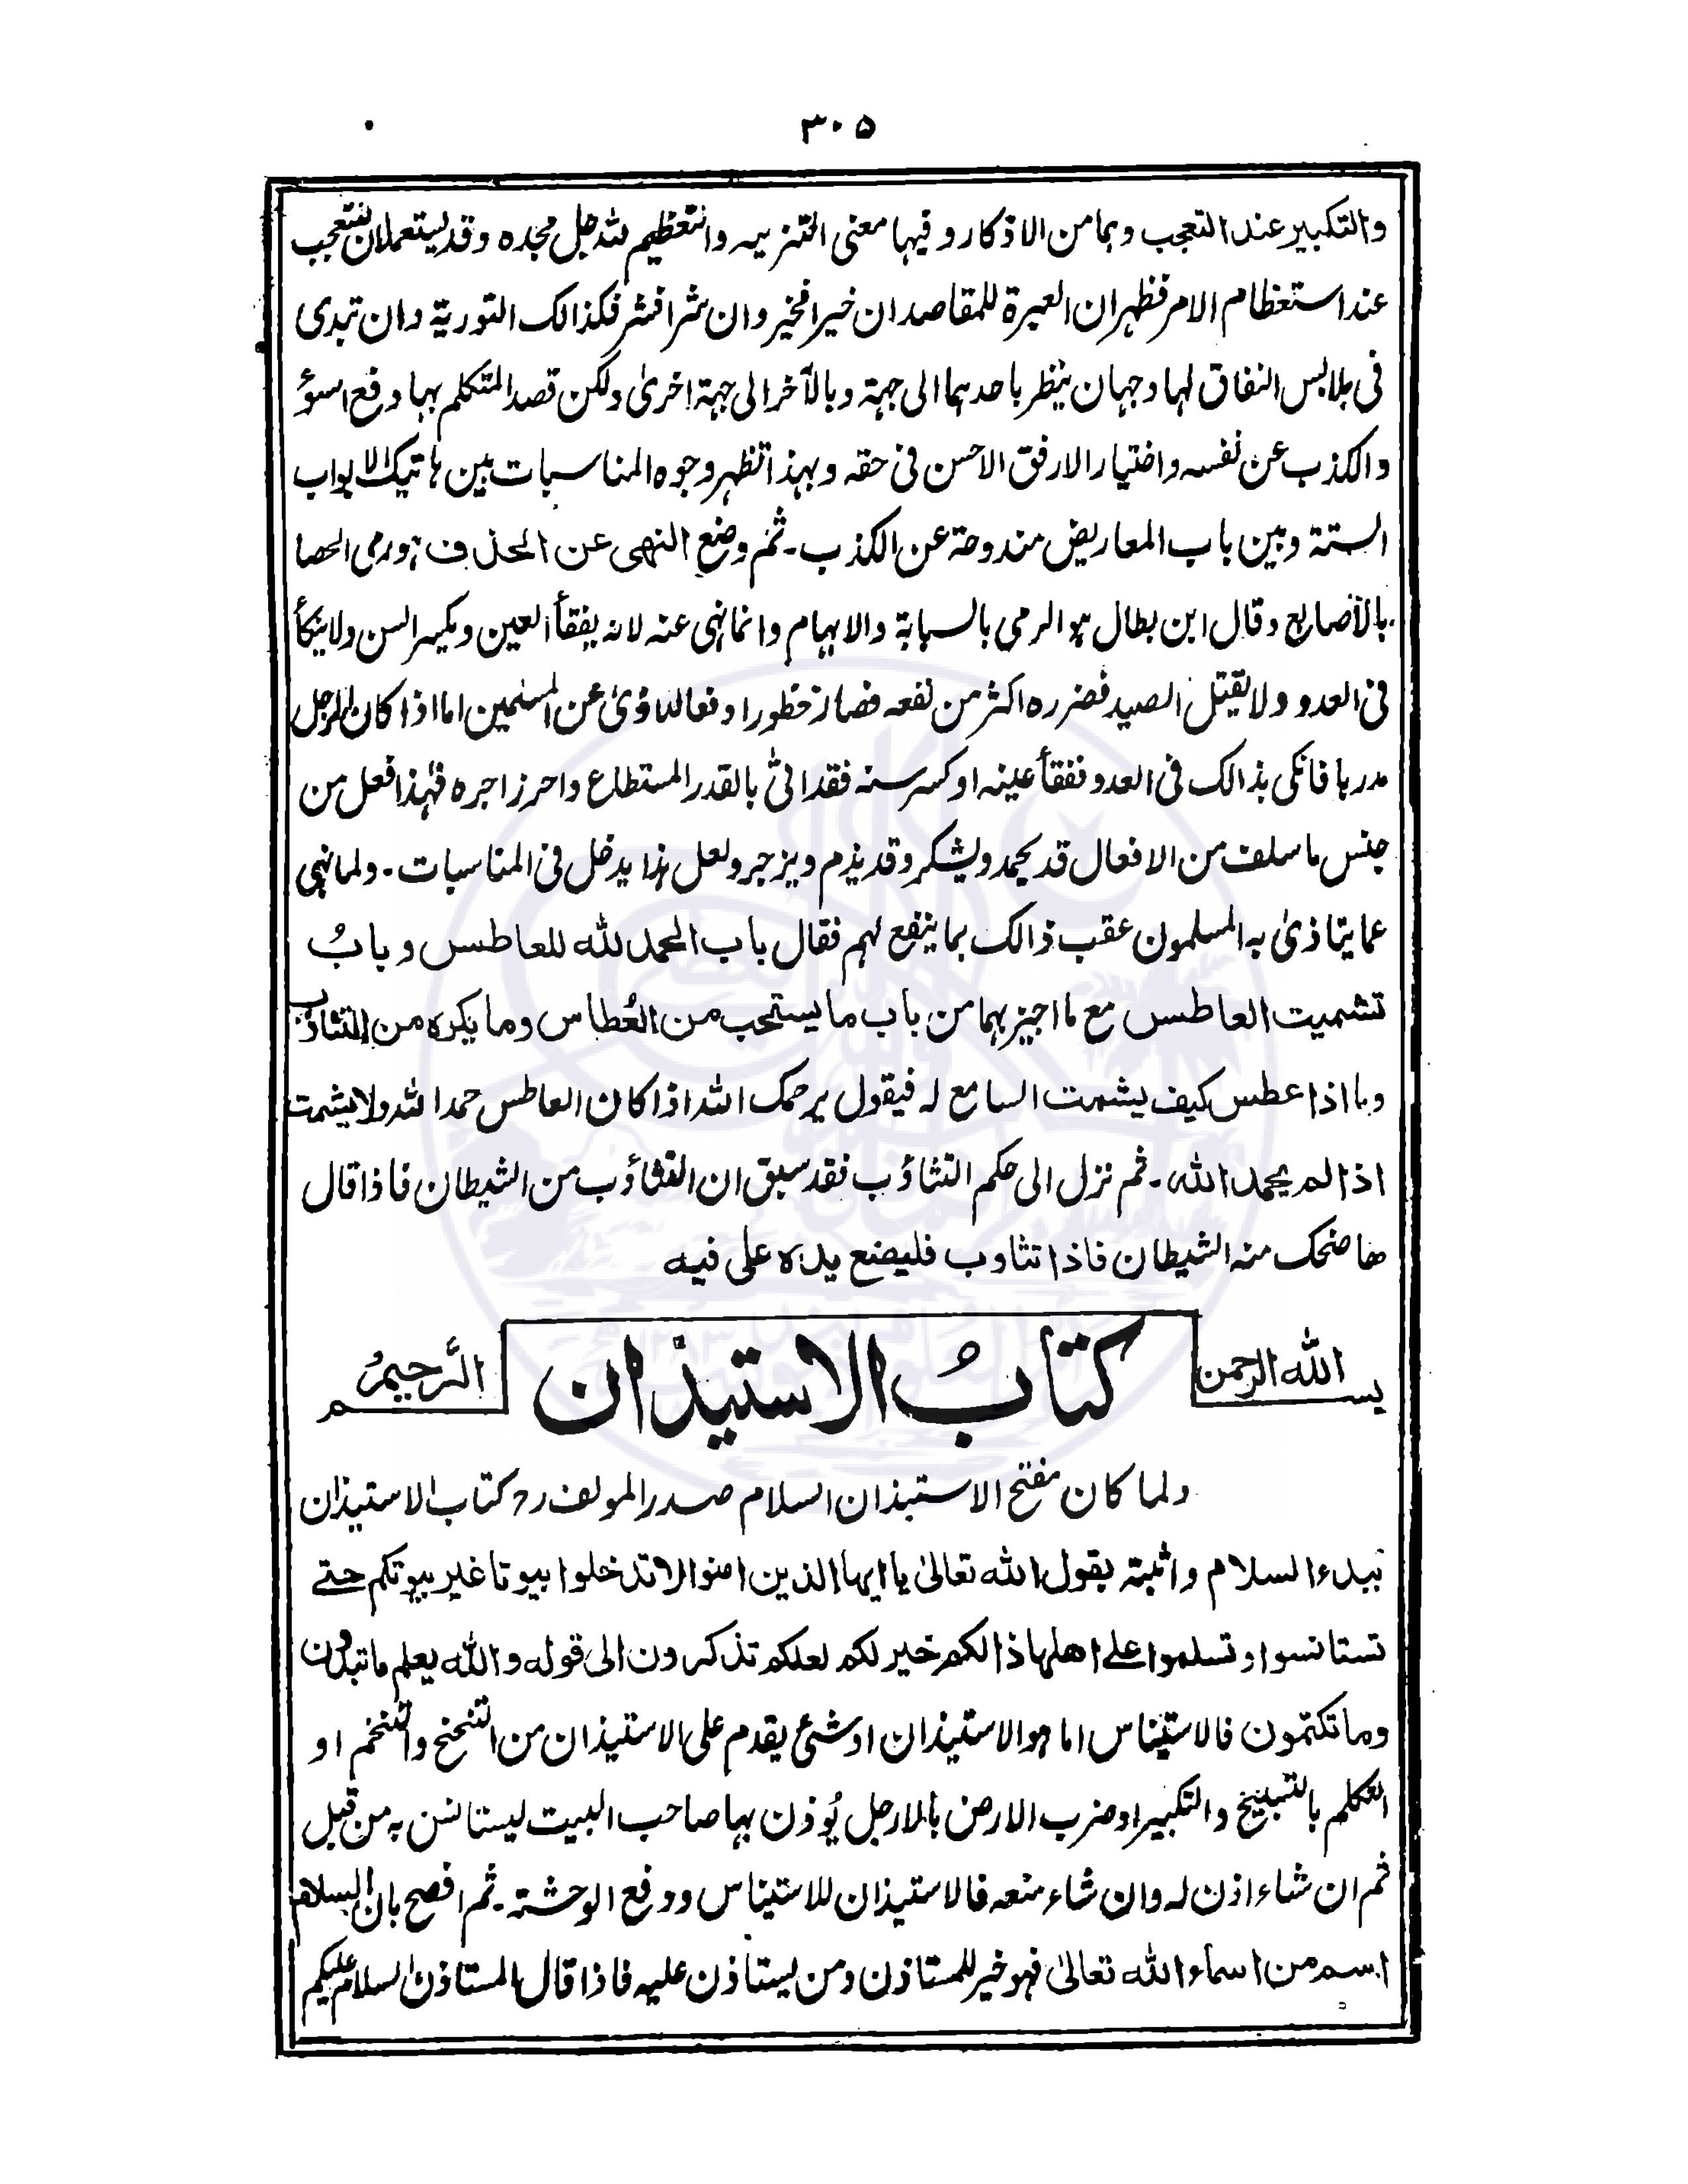 ٣٠٥
والتكبير عند التعجب وهما من الاذكار وفيها معنى التنزيه والتعظيم لله جل مجده وقد يستعملان للتعجب
عند استعظام الامر فظهر ان العبرة للمقاصد ان خيرا فخير وان شرا فشر فكذالك التورية وان تبدى
فى ملابس النفاق لها وجهان ينظر باحدهما الى جهة وبالآخر الى جهة اخرىٰ ولكن قصد المتكلم بها دفع اسوؤ
والكذب عن نفسه واختيار الارفق الاحسن فى حقه وبهذا تظهر وجوه المناسبات بين هاتيك الابواب
الستة وبين باب المعاريض مندوحة عن الكذب۔ ثم وضع النهى عن الحذف وهو رمى الحصا
بالأصابع وقال ابن بطال هو الرمى بالسبابة والابهام وانما نهى عنه لانه يفقأ العين ويكسر السن ولا ينكأ
فى العدو ولا يقتل الصيد فضرره اكثر من نفعه فصار محظورا دفعا للاذىٰ عن المسلمين اما اذا كان الرجل
مدربا فانكى بذالك فى العدو ففقأ عينه او كسر سنه فقد اتىٰ بالقدر المستطاع واحرز اجره فهٰذا فعل من
جنس ما سلف من الافعال قد يحمد ويشكر وقد يذم ويزجر ولعل هذا يدخل فى المناسبات۔ ولما نهى
عما يتاذىٰ به المسلمون عقب ذالك بما ينفع لهم فقال باب الحمد لله للعاطس وبابُ
تشميت العاطس مع ما اجيز بهما من باب ما يستحب من العُطاس وما يكره من التثاؤب
وبا اذا عطس كيف يشمت السامع له فيقول يرحمك الله اذا كان العاطس حمد الله ولا يشمت
اذا لم يحمد الله۔ ثم نزل الى حكم التثاؤب فقد سبق ان التثاؤب من الشيطان فاذا قال
ها ضحك منه الشيطان فاذا تثاوب فليضع يده على فيه
بسم الله الرحمن الرحيم
كتابُ الاستيذان
ولما كان مفتح الاستيذان السلام صدر المولف رح كتاب الاستيذان
ببدء السلام واثبته بقول الله تعالىٰ يا ايها الذين امنوا لا تدخلوا بيوتا غير بيوتكم حتے
تستانسوا وتسلموا علے اهلها ذالكم خير لكم لعلكم تذكرون الى قوله والله يعلم ما تبدون
وما تكتمون فالاستيناس اما هو الاستيذان او شئ يقدم على الاستيذان من التنحنح والتنخم او
التكلم بالتسبيح والتكبير او ضرب الارض بالارجل يُوذن بها صاحب البيت ليستانس به من قبل
ثم ان شاء اذن له وان شاء منعه فالاستيذان للاستيناس ودفع الوحشة۔ ثم افصح بان السلام
اسم من اسماء الله تعالىٰ فهو خير للمستاذن ومن يستاذن عليه فاذا قال المستاذن السلام عليكم